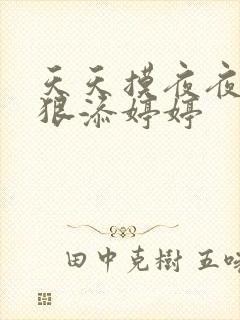 天天摸夜夜
狠添婷婷
田中克樹 五